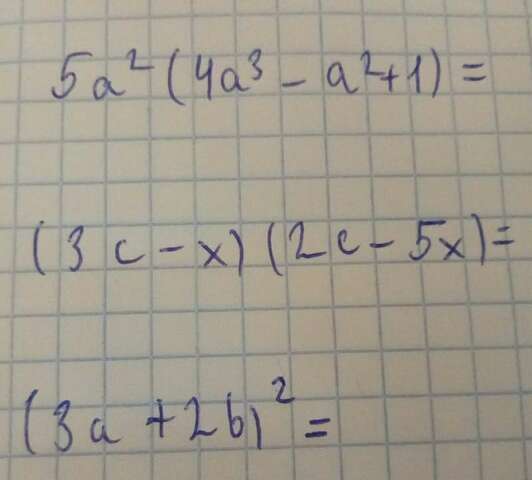 5a²(4a³ - a²+1) =
(3c - x)(2c - 5x) =
(3a + 2b)² =